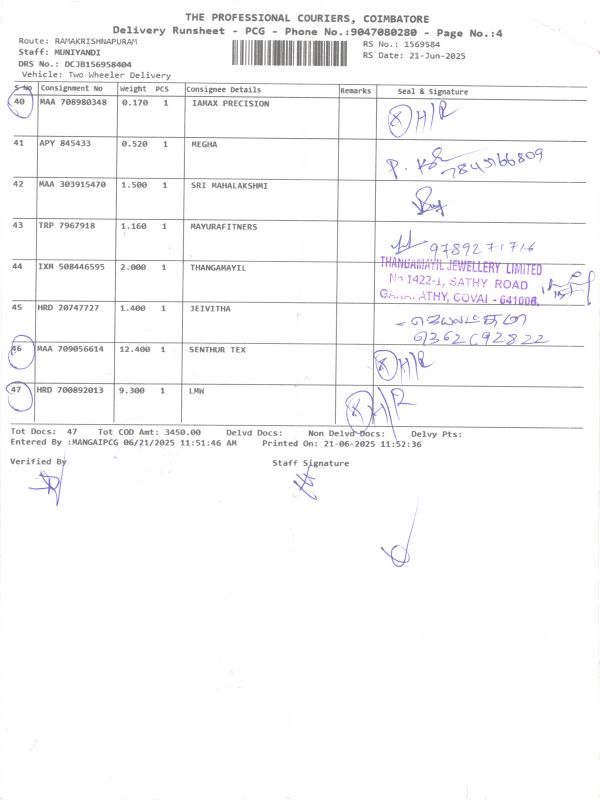 THE PROFESSIONAL COURIERS, COIMBATORE
Delivery Runsheet - PCG - Phone No.:9047080280 - Page No.:4
Route: RAMAKRISHNAPURAM
Staff: MUNIYANDI
DRS No.: DCJB156958404
Vehicle: Two Wheeler Delivery
RS No.: 1569584
RS Date: 21-Jun-2025
S No Consignment No Weight PCS Consignee Details Remarks Seal & Signature
40 MAA 708980348 0.170 1 IAMAX PRECISION X H/R
41 APY 845433 0.520 1 MEGHA
7845166809
42 MAA 303915470 1.500 1 SRI MAHALAKSHMI
43 TRP 7967918 1.160 1 MAYURAFITNERS 9789271716
44 IXM 508446595 2.000 1 THANGAMAYIL
THANGAMAYIL JEWELLERY LIMITED
No 1422-1, SATHY ROAD
GANAPATHY, COVAI - 641006.
45 HRD 20747727 1.400 1 JEIVITHA
46 MAA 709056614 12.400 1 SENTHUR TEX X H/R
47 HRD 700892013 9.300 1 LMW X H/R
Tot Docs: 47 Tot COD Amt: 3450.00 Delvd Docs: Non Delvd Docs: Delvy Pts:
Entered By :MANGAIPCG 06/21/2025 11:51:46 AM Printed On: 21-06-2025 11:52:36
Verified By Staff Signature